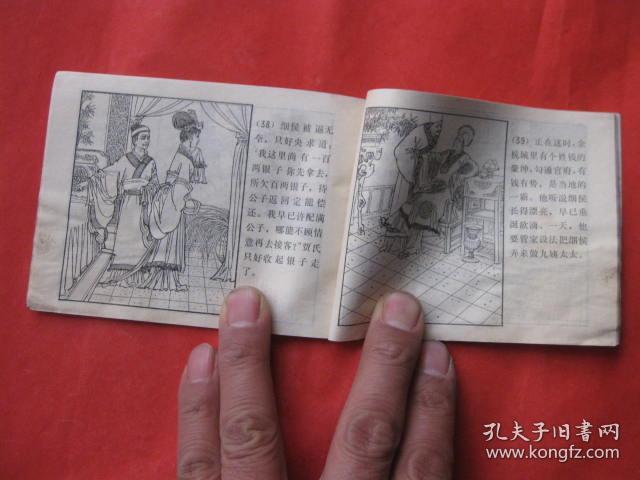 (38) 细侯被逼无
奈,只好央求道,
“我这里尚有一百
两银子你先拿去,
所欠百两银子,待
公子返回定能偿
还。我早已许配满
公子,哪能不顾情
意再去接客?”贾氏
只好收起银子走
了。
(39) 正在这时,余
杭城里有个姓钱的
豪绅,勾通官府,有
钱有势,是当地的
一霸。他听说细侯
长得漂亮,早已垂
涎欲滴。一天,他
要管家设法把细侯
弄来做九姨太太。
孔夫子旧书网
www.kongfz.com